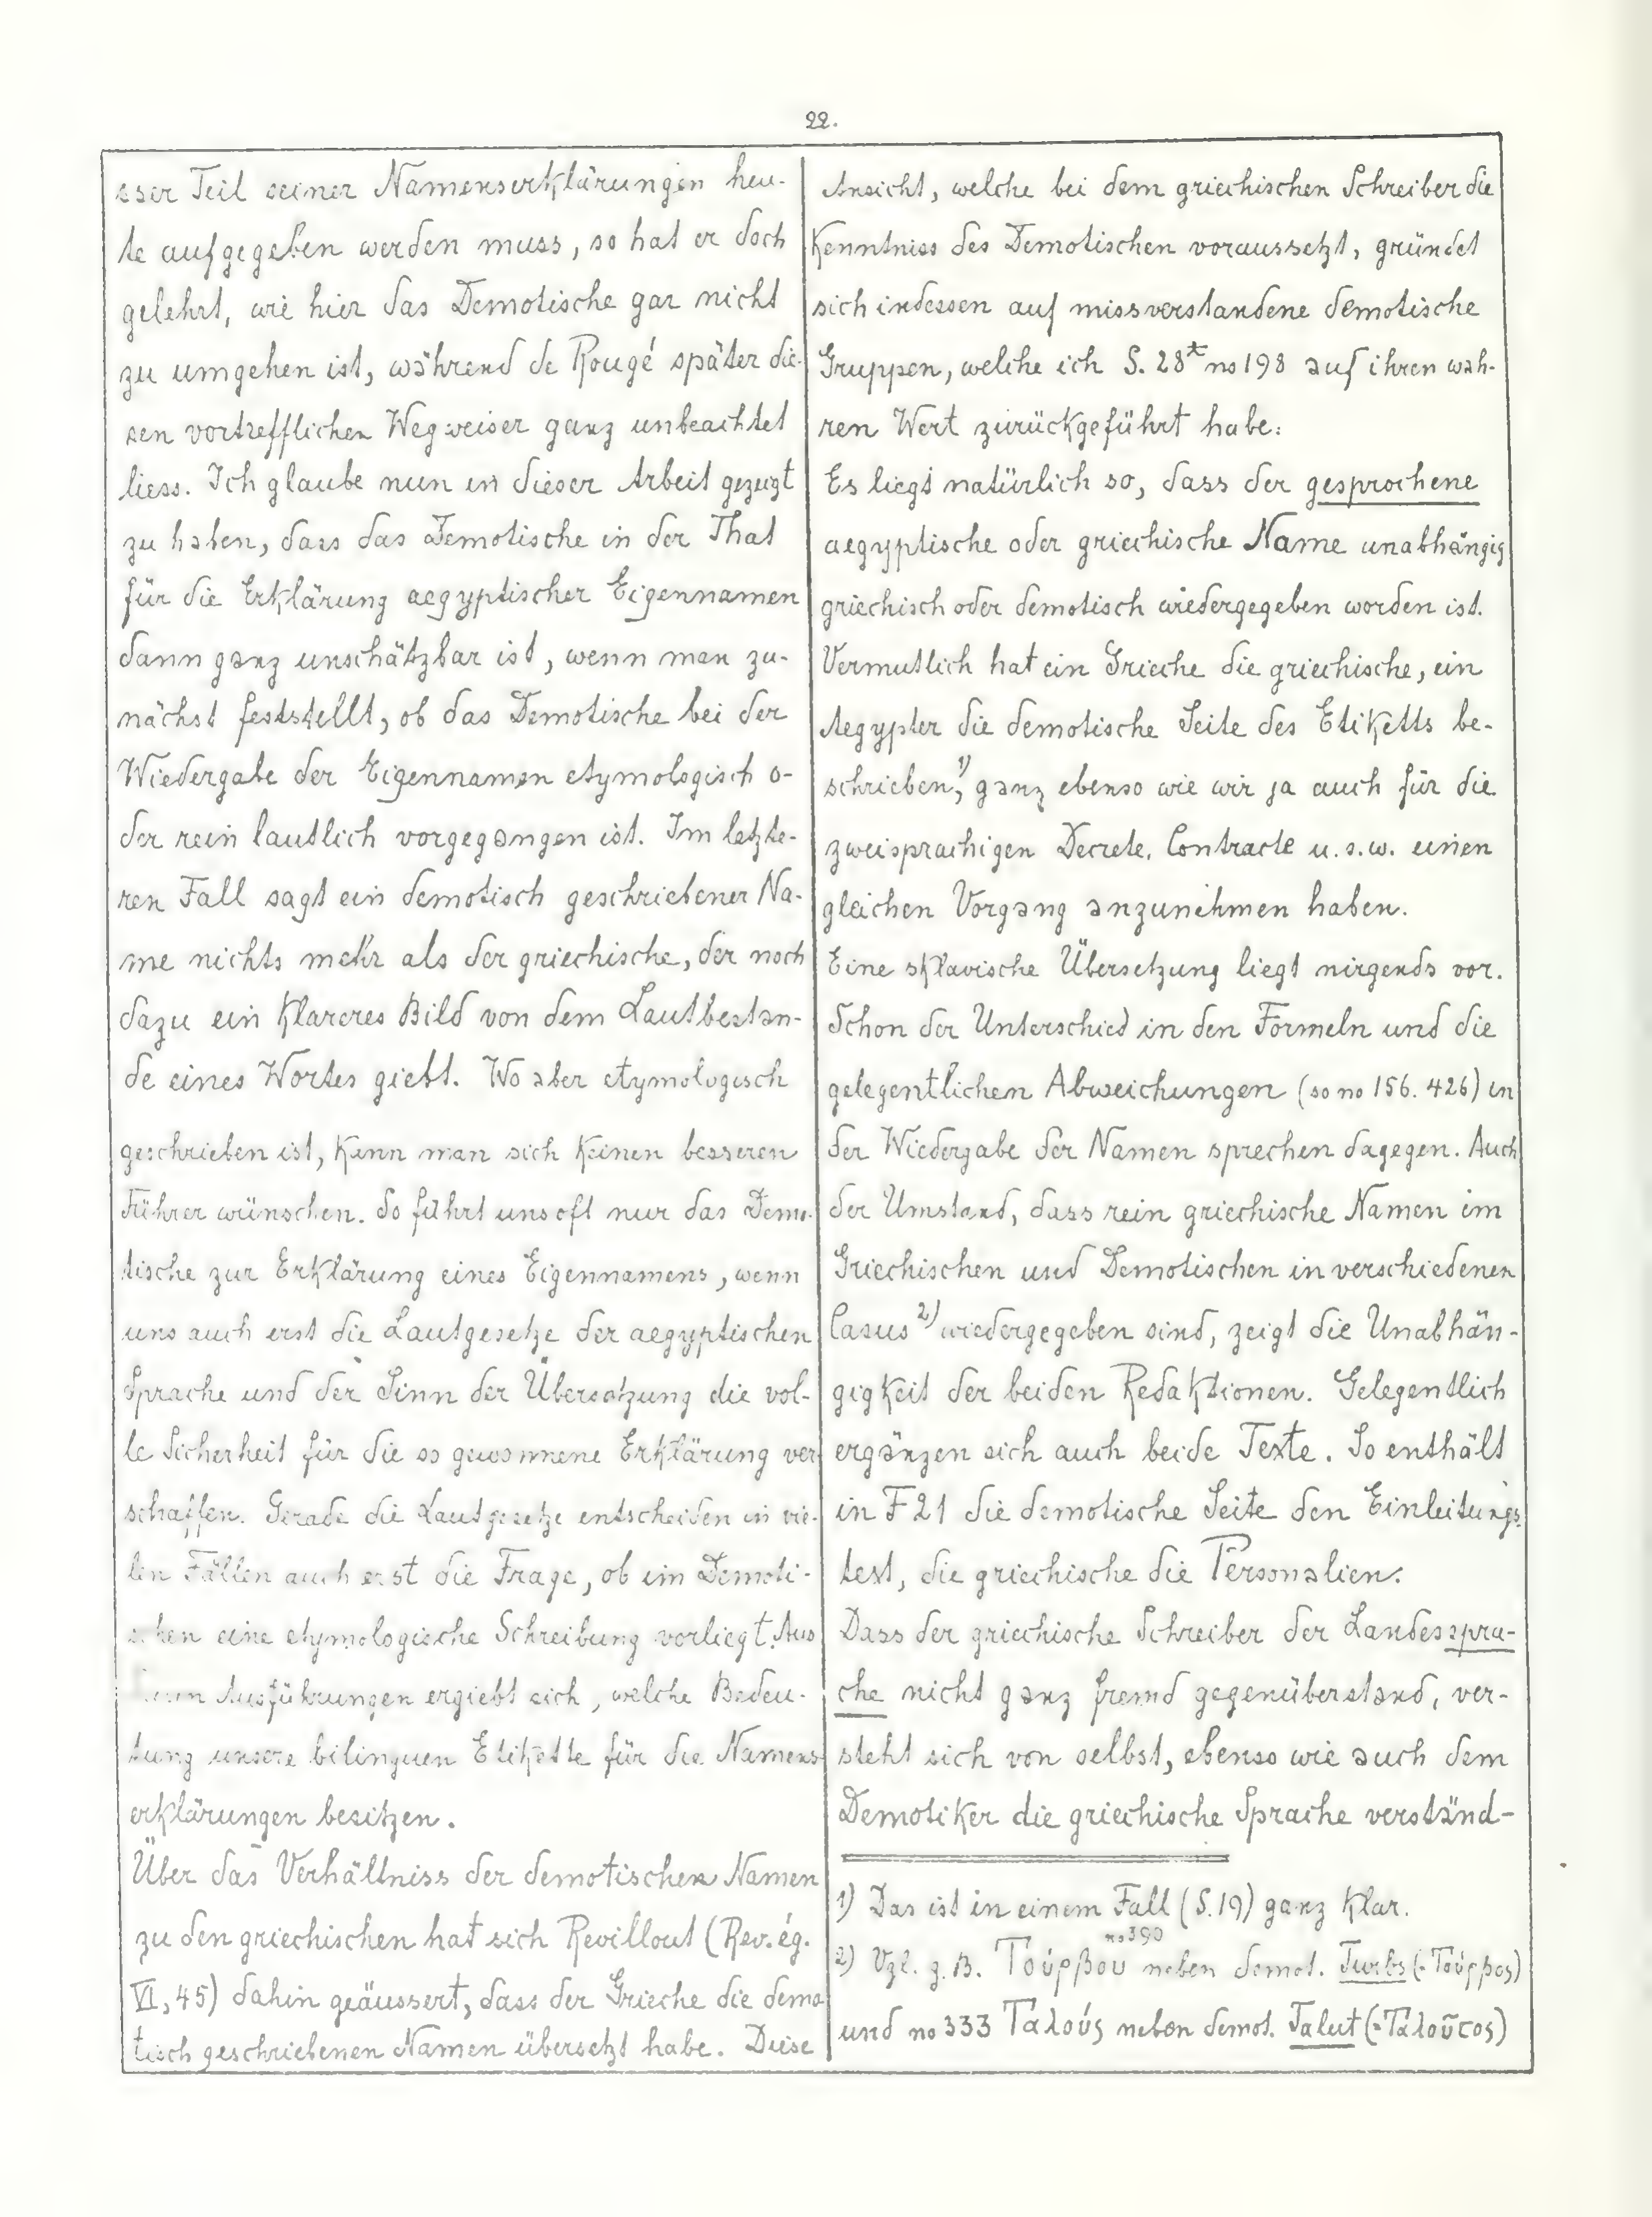 22.
sser Teil seiner Namenserklärungen heu-
te aufgegeben werden muss, so hat er doch
gelehrt, wie hier das Demotische gar nicht
zu umgehen ist, während de Rougé später die-
sen vortrefflichen Wegweiser ganz unbeachtet
liess. Ich glaube nun in dieser Arbeit gezeigt
zu haben, dass das Demotische in der That
für die Erklärung aegyptischer Eigennamen
dann ganz unschätzbar ist, wenn man zu-
nächst feststellt, ob das Demotische bei der
Wiedergabe der Eigennamen etymologisch o-
der rein lautlich vorgegangen ist. Im letzte-
ren Fall sagt ein demotisch geschriebener Na-
me nichts mehr als der griechische, der noch
dazu ein klareres Bild von dem Lautbestan-
de eines Wortes giebt. Wo aber etymologisch
geschrieben ist, kann man sich keinen besseren
Führer wünschen. So führt uns oft nur das Demo-
tische zur Erklärung eines Eigennamens, wenn
uns auch erst die Lautgesetze der aegyptischen
Sprache und der Sinn der Übersetzung die vol-
le Sicherheit für die so gewonnene Erklärung ver-
schaffen. Gerade die Lautgesetze entscheiden in vie-
len Fällen auch erst die Frage, ob im Demoti-
schen eine etymologische Schreibung vorliegt. Aus
Ausführungen ergiebt sich, welche Bedeu-
tung unsere bilinguen Etikette für die Namens-
erklärungen besitzen.
Über das Verhältniss der demotischen Namen
zu den griechischen hat sich Revillout (Rev. ég.
VI, 45) dahin geäussert, dass der Grieche die demo
tisch geschriebenen Namen übersetzt habe. Diese
Ansicht, welche bei dem griechischen Schreiber die
Kenntniss des Demotischen voraussetzt, gründet
sich indessen auf missverstandene demotische
Gruppen, welche ich S. 28* no 198 auf ihren wah-
ren Wert zurückgeführt habe.
Es liegt natürlich so, dass der gesprochene
aegyptische oder griechische Name unabhängig
griechisch oder demotisch wiedergegeben worden ist.
Vermutlich hat ein Grieche die griechische, ein
Aegypter die demotische Seite des Etiketts be-
schrieben,1) ganz ebenso wie wir ja auch für die
zweisprachigen Decrete, Contracte u. s. w. einen
gleichen Vorgang anzunehmen haben.
Eine sklavische Übersetzung liegt nirgends vor.
Schon der Unterschied in den Formeln und die
gelegentlichen Abweichungen (so no 156. 426) in
der Wiedergabe der Namen sprechen dagegen. Auch
der Umstand, dass rein griechische Namen im
Griechischen und Demotischen in verschiedenen
Casus 2) wiedergegeben sind, zeigt die Unabhän-
gigkeit der beiden Redaktionen. Gelegentlich
ergänzen sich auch beide Texte. So enthält
in F 21 die demotische Seite den Einleitungs-
text, die griechische die Personalien.
Dass der griechische Schreiber der Landesspra-
che nicht ganz fremd gegenüberstand, ver-
steht sich von selbst, ebenso wie auch dem
Demotiker die griechische Sprache verständ-
1) Das ist in einem Fall (S. 19) ganz klar.
2) Vgl. z. B. no 390 Τούρβου neben demot. Turbs (= Τούρβος)
und no 333 Ταλοῦς neben demot. Talut (= Ταλοῦτος)